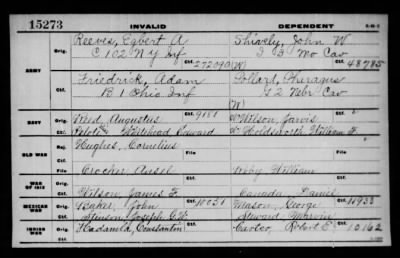 15273 INVALID DEPENDENT
Reeves, Egbert A Shively, John W
Orig. C 102 N Y Inf I 3 Mo Cav
Ctf. 272090 (W) Ctf. 48785
ARMY
Friedrick, Adam Pollard,
Orig. B 1 Ohio Inf G 2 Nebr Cav
Ctf. (W) Ctf.
NAVY Orig. Reid, Augustus 9151 Wilson, Jarvis
Ctf. Whitehead Edward Holdsworth William F.
Orig. Hughes, Cornelius File
OLD WAR
Ctf. File
Crocker Ansel William
WAR OF 1812 Orig.
Ctf. Wilson James F. Canada Daniel
MEXICAN WAR Orig. Baker, John 10051 Mason, George 10933
Ctf. Stinson Joseph G.W. Steward Marvin
INDIAN WAR Orig. Hadamila, Constantin Robert E. 10162
Ctf. Ctf.